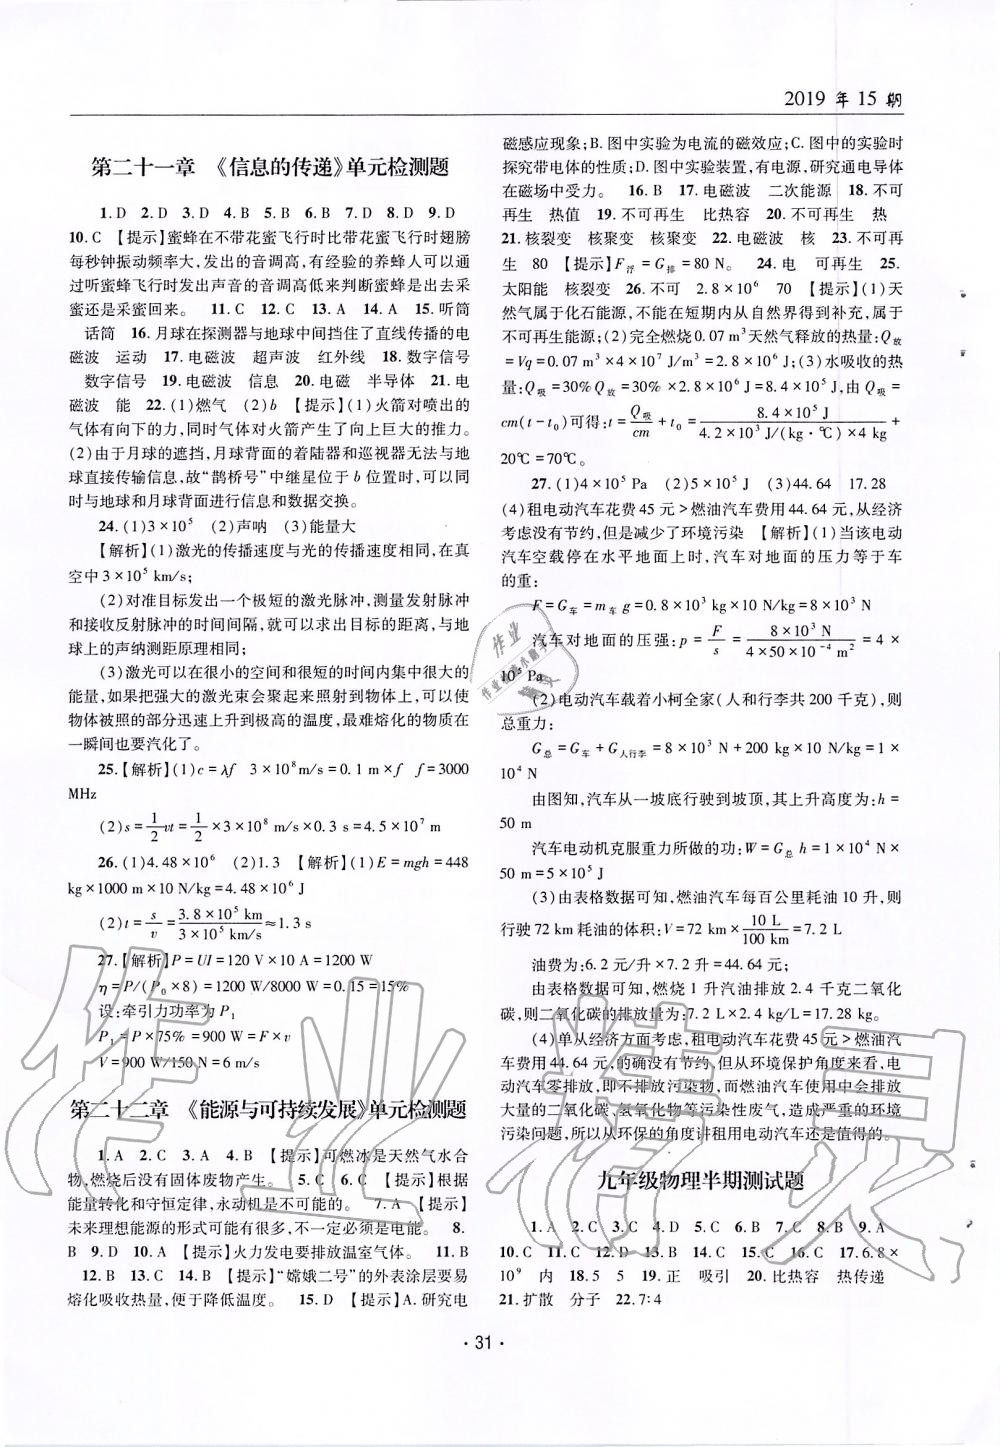 2019 年 15 期
第二十一章 《信息的传递》单元检测题
1. D 2. D 3. D 4. B 5. B 6. B 7. D 8. D 9. D
10. C 【提示】蜜蜂在不带花蜜飞行时比带花蜜飞行时翅膀
每秒钟振动频率大,发出的音调高,有经验的养蜂人可以
通过听蜜蜂飞行时发出声音的音调高低来判断蜜蜂是出去采
蜜还是采蜜回来。 11. C 12. C 13. A 14. A 15. 听筒
话筒 16. 月球在探测器与地球中间挡住了直线传播的电
磁波 运动 17. 电磁波 超声波 红外线 18. 数字信号
数字信号 19. 电磁波 信息 20. 电磁 半导体 21. 电
磁波 能 22. (1)燃气 (2)b 【提示】(1)火箭对喷出的
气体有向下的力,同时气体对火箭产生了向上巨大的推力。
(2)由于月球的遮挡,月球背面的着陆器和巡视器无法与地
球直接传输信息,故“鹊桥号”中继星位于 b 位置时,可以同
时与地球和月球背面进行信息和数据交换。
24. (1)3×10⁵ (2)声呐 (3)能量大
【解析】(1)激光的传播速度与光的传播速度相同,在真
空中 3×10⁵ km/s;
(2)对准目标发出一个极短的激光脉冲,测量发射脉冲
和接收反射脉冲的时间间隔,就可以求出目标的距离,与地
球上的声纳测距原理相同;
(3)激光可以在很小的空间和很短的时间内集中很大的
能量,如果把强大的激光束会聚起来照射到物体上,可以使
物体被照的部分迅速上升到极高的温度,最难熔化的物质在
一瞬间也要汽化了。
25. 【解析】(1)c=λf 3×10⁸m/s=0.1 m×f f=3000
MHz
(2)s=1/2 vt=1/2×3×10⁸ m/s×0.3 s=4.5×10⁷ m
26. (1)4.48×10⁶ (2)1.3 【解析】(1)E=mgh=448
kg×1000 m×10 N/kg=4.48×10⁶ J
(2)t=s/v=3.8×10⁵ km/3×10⁵ km/s≈1.3 s
27. 【解析】P=UI=120 V×10 A=1200 W
η=P/(P₀×8)=1200 W/8000 W=0.15=15%
设:牵引力功率为 P₁
P₁=P×75%=900 W=F×v
V=900 W/150 N=6 m/s
第二十二章 《能源与可持续发展》单元检测题
1. A 2. C 3. A 4. B 【提示】可燃冰是天然气水合
物,燃烧后没有固体废物产生。 5. C 6. C 【提示】根据
能量转化和守恒定律,永动机是不可能的。 7. A 【提示】
未来理想能源的形式可能有很多,不一定必须是电能。 8.
B 9. D 10. A 【提示】火力发电要排放温室气体。 11. B
12. B 13. C 14. B【提示】“嫦娥二号”的外表涂层要易
熔化吸收热量,便于降低温度。 15. D 【提示】A. 研究电
磁感应现象;B. 图中实验为电流的磁效应;C. 图中的实验时
探究带电体的性质;D. 图中实验装置,有电源,研究通电导体
在磁场中受力。 16. B 17. 电磁波 二次能源 18. 不可
再生 热值 19. 不可再生 比热容 20. 不可再生 热
21. 核裂变 核聚变 核聚变 22. 电磁波 核 23. 不可再
生 80 【提示】F浮=G排=80 N。 24. 电 可再生 25.
太阳能 核裂变 26. 不可 2.8×10⁶ 70 【提示】(1)天
然气属于化石能源,不能在短期内从自然界得到补充,属于
不可再生能源;(2)完全燃烧 0.07 m³天然气释放的热量:Q放
=Vq=0.07 m³×4×10⁷ J/m³=2.8×10⁶ J;(3)水吸收的热
量:Q吸=30%Q放=30%×2.8×10⁶ J=8.4×10⁵ J,由 Q吸=
cm(t-t₀)可得:t=Q吸/cm+t₀=8.4×10⁵ J/4.2×10³ J/(kg·℃)×4 kg+
20℃=70℃。
27. (1)4×10⁵ Pa (2)5×10⁵ J (3)44.64 17.28
(4)租电动汽车花费 45 元>燃油汽车费用 44.64 元,从经济
考虑没有节约,但是减少了环境污染 【解析】(1)当该电动
汽车空载停在水平地面上时,汽车对地面的压力等于车
的重:
F=G车=m车g=0.8×10³ kg×10 N/kg=8×10³ N
汽车对地面的压强:p=F/s=8×10³ N/4×50×10⁻⁴ m²=4×
10⁵ Pa
(2)电动汽车载着小柯全家(人和行李共 200 千克),则
总重力:
G总=G车+G人行李=8×10³ N+200 kg×10 N/kg=1×
10⁴ N
由图知,汽车从一坡底行驶到坡顶,其上升高度为:h=
50 m
汽车电动机克服重力所做的功:W=G总h=1×10⁴ N×
50 m=5×10⁵ J
(3)由表格数据可知,燃油汽车每百公里耗油 10 升,则
行驶 72 km 耗油的体积:V=72 km×10 L/100 km=7.2 L
油费为:6.2 元/升×7.2 升=44.64 元;
由表格数据可知,燃烧 1 升汽油排放 2.4 千克二氧化
碳,则二氧化碳的排放量为:7.2 L×2.4 kg/L=17.28 kg。
(4)单从经济方面考虑,租电动汽车花费 45 元>燃油汽
车费用 44.64 元,的确没有节约,但从环境保护角度来看,电
动汽车零排放,即不排放污染物,而燃油汽车使用中会排放
大量的二氧化碳、氢氧化物等污染性废气,造成严重的环境
污染问题,所以从环保的角度讲租用电动汽车还是值得的。
九年级物理半期测试题
1. A 2. C 3. D 4. C 5. D 6. B 7. C 8. B 9. A
10. C 11. C 12. D 13. B 14. C 15. A 16. C 17. 6.8×
10⁹ 内 18. 5 5 19. 正 吸引 20. 比热容 热传递
21. 扩散 分子 22. 7:4
· 31 ·
作业精灵